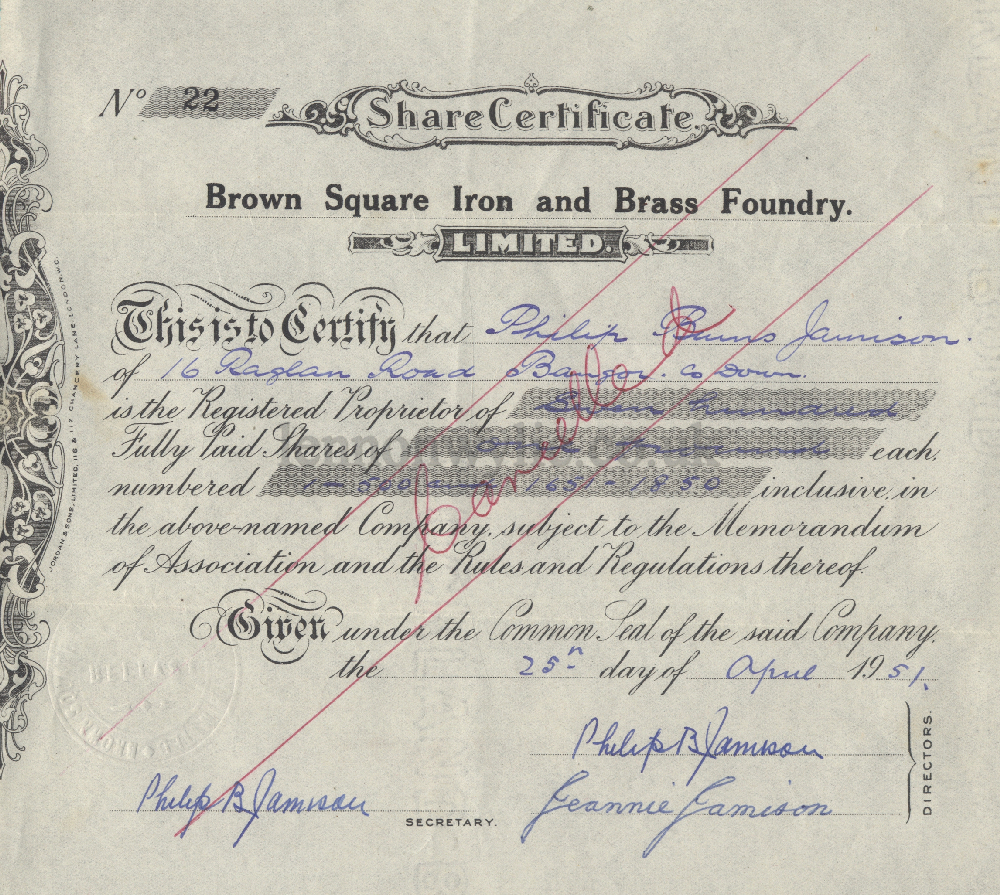 Nº 22
Share Certificate.
Brown Square Iron and Brass Foundry.
LIMITED.
This is to Certify that Philip Burns Jamison.
of 16 Raglan Road Bangor. Co Down.
is the Registered Proprietor of Seven hundred
Fully Paid Shares of each,
numbered 1 - 500 and 1651 - 1850 inclusive, in
the above-named Company, subject to the Memorandum
of Association and the Rules and Regulations thereof
Given under the Common Seal of the said Company,
the 25th day of April 1951.
Philip B Jamison
Philip B Jamison
Jeannie Jamison
SECRETARY.
DIRECTORS.
Cancelled
JORDAN & SONS, LIMITED, 116 & 117 CHANCERY LANE, LONDON, W.C.
BELFAST